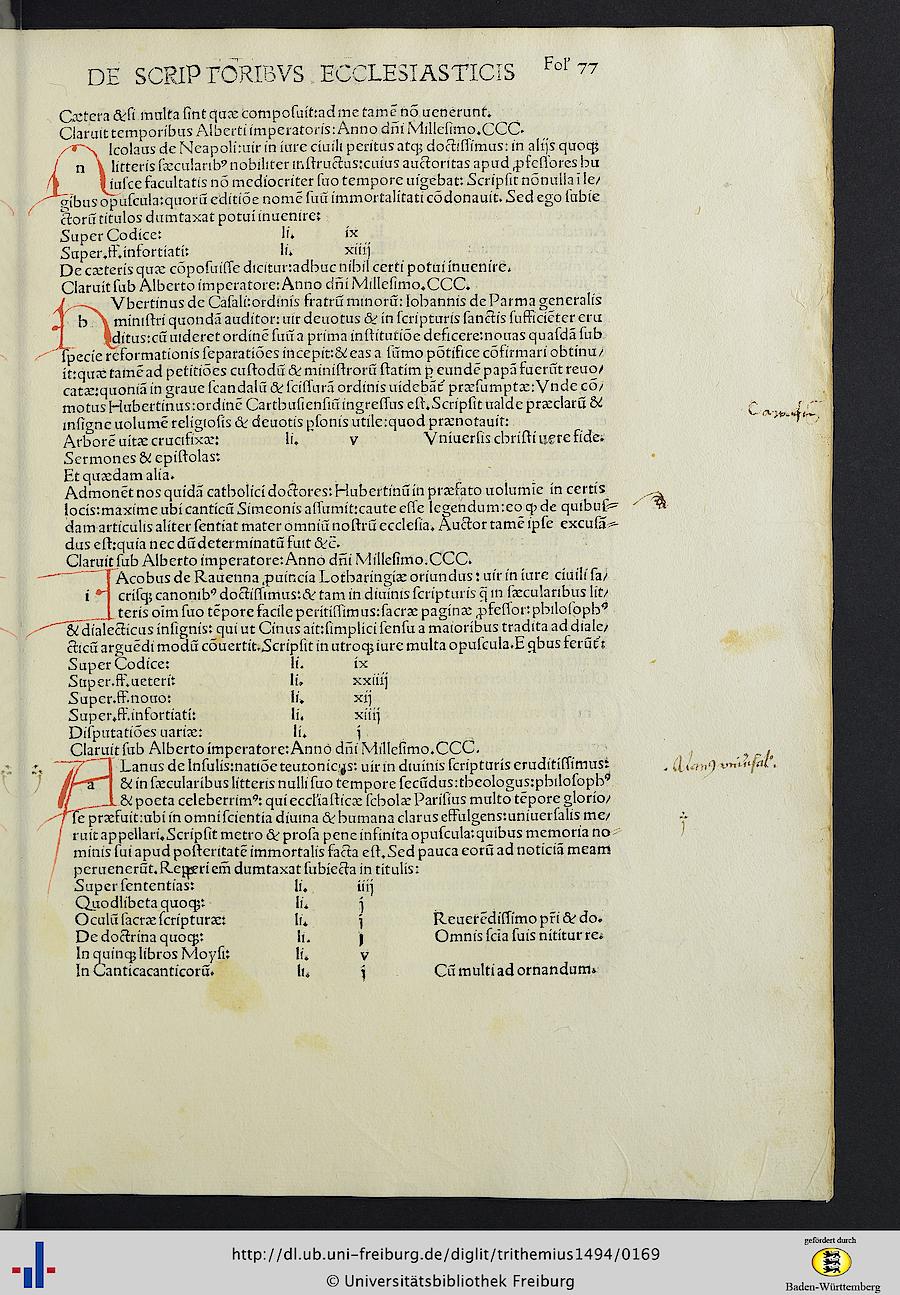 DE SCRIPTORIBVS ECCLESIASTICIS Fol' 77
Cætera &si multa sint quæ composuit:ad me tamē nō uenerunt.
Claruit temporibus Alberti imperatoris:Anno dn̄i Millesimo.CCC.
n Icolaus de Neapoli:uir in iure ciuili peritus atq; doctissimus: in alijs quoq;
litteris sæcularibꝰ nobiliter instructus:cuius auctoritas apud ꝓfessores hu
iusce facultatis nō mediocriter suo tempore uigebat: Scripsit nōnulla ī le/
gibus opuscula:quorū editiōe nomē suū immortalitati cōdonauit. Sed ego subie
ctorū titulos dumtaxat potui inuenire:
Super Codice: li. ix
Super.ff.infortiati: li. xiiij
De cæteris quæ cōposuisse dicitur:adhuc nihil certi potui inuenire.
Claruit sub Alberto imperatore:Anno dn̄i Millesimo.CCC.
h Vbertinus de Casali:ordinis fratrū minorū: Iohannis de Parma generalis
ministri quondā auditor: uir deuotus & in scripturis sanctis sufficiēter eru
ditus:cū uideret ordinē suū a prima institutiōe deficere:nouas quasdā sub
specie reformationis separatiōes incepit:& eas a sūmo pōtifice cōfirmari obtinu/
it:quæ tamē ad petitiōes custodū & ministrorū statim ꝑ eundē papā fuerūt reuo/
catæ:quoniā in graue scandalū & scissurā ordinis uidebāt̄ præsumptæ:Vnde cō/
motus Hubertinus:ordinē Carthusiensiū ingressus est.Scripsit ualde præclarū &
insigne uolumē religiosis & deuotis ꝑsonis utile:quod prænotauit:
Arborē uitæ crucifixæ: li. v Vniuersis christi uere fide.
Sermones & epistolas:
Et quædam alia.
Admonēt nos quidā catholici doctores: Hubertinū in præfato uolumīe in certis
locis:maxime ubi canticū Simeonis assumit:caute esse legendum:eo ꝙ de quibus=
dam articulis aliter sentiat mater omniū nostrū ecclesia. Auctor tamē ipse excusā=
dus est:quia nec dū determinatū fuit &c̄.
Claruit sub Alberto imperatore:Anno dn̄i Millesimo.CCC.
i Acobus de Rauenna ꝓuincia Lotharingiæ oriundus: uir in iure ciuili sa/
crisq; canonibꝰ doctissimus:& tam in diuinis scripturis q̄ in sæcularibus lit/
teris oīm suo tēpore facile peritissimus:sacræ paginæ ꝓfessor:philosophꝰ
& dialecticus insignis: qui ut Cinus ait:simplici sensu a maioribus tradita ad diale/
cticū arguēdi modū cōuertit.Scripsit in utroq; iure multa opuscula.E qbus ferūt̄:
Super Codice: li. ix
Super.ff.ueteri: li. xxiiij
Super.ff.nouo: li. xij
Super.ff.infortiati: li. xiiij
Disputatiōes uariæ: li. j
Claruit sub Alberto imperatore:Anno dn̄i Millesimo.CCC.
a Lanus de Insulis:natiōe teutonicus: uir in diuinis scripturis eruditissimus:
& in sæcularibus litteris nulli suo tempore secūdus:theologus:philosophꝰ
& poeta celeberrimꝰ: qui eccl'iasticæ scholæ Parisius multo tēpore glorio/
se præfuit:ubi in omni scientia diuina & humana clarus effulgens:uniuersalis me/
ruit appellari.Scripsit metro & prosa pene infinita opuscula:quibus memoria no=
minis sui apud posteritatē immortalis facta est.Sed pauca eorū ad noticiā meam
peruenerūt. Repperi em̄ dumtaxat subiecta in titulis:
Super sententias: li. iiij
Quodlibeta quoq;: li. j
Oculū sacræ scripturæ: li. j Reuerēdissimo pr̄i & do.
De doctrina quoq;: li. j Omnis scīa suis nititur re.
In quinq; libros Moysi: li. v
In Canticacanticorū. li. j Cū multi ad ornandum.
Alanꝰ vniūsal'.
http://dl.ub.uni-freiburg.de/diglit/trithemius1494/0169
© Universitätsbibliothek Freiburg
gefördert durch
Baden-Württemberg